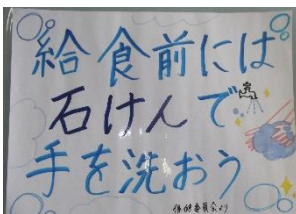 給食前には
石けんで
手を洗おう
保健委員会より